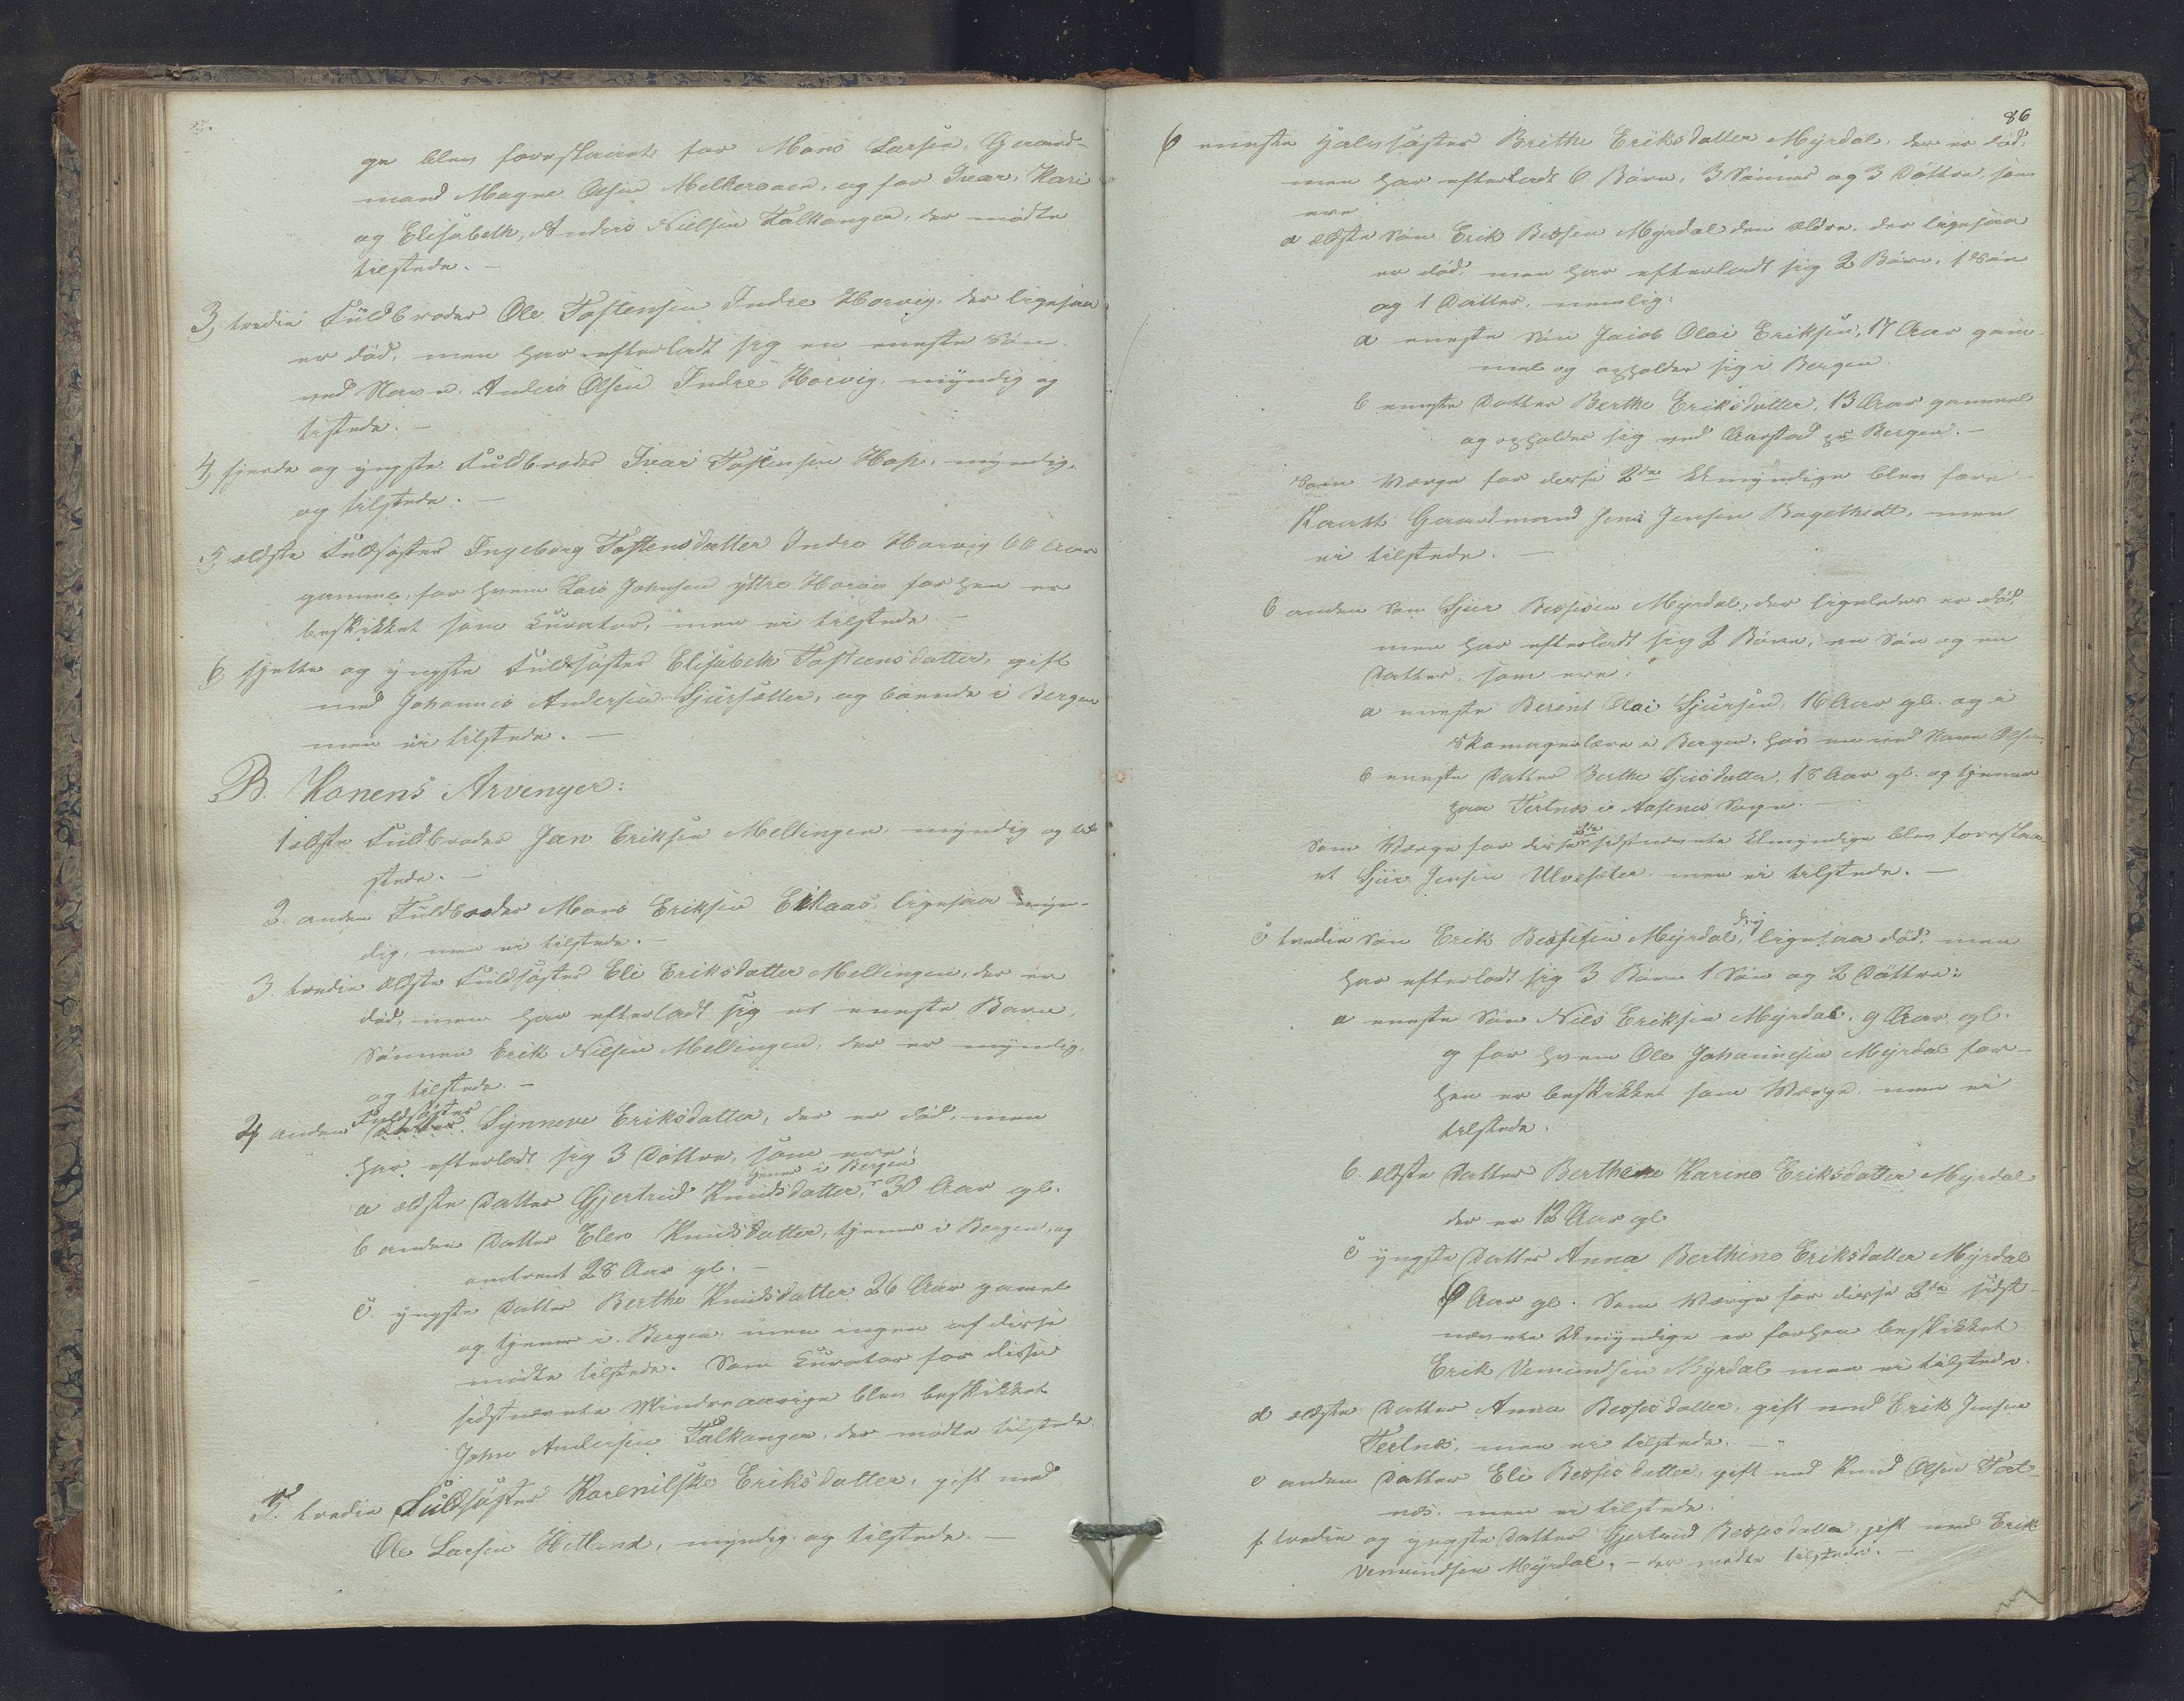 ge blev foreslaaet for Mons Larsen, Gaard-
mand Magne Olsen Melkeraaen, og for Ivar, Kari
og Elisabeth, Anders Nielsen Tælkanger, der mødte
tilstede. —
3, tredie Fuldbroder Ole Tostensen Indre Horvig, der ligesaa
er död, men har efterladt sig en eneste Sön
ved Navn Anders Olsen Indre Horvig, myndig og
tilstede. —
4, fjerde og yngste Fuldbroder Ivar Tostensen Hop, myndig
og tilstede. —
5, ældste Fuldsøster Ingeborg Tostensdatter Indre Horvig 66 Aar
gammel, for hvem Lars Johnsen yttre Horvig forhen er
beskikket som Curator, men ei tilstede —
6, sjette og yngste Fuldsøster Elisabeth Tosteensdatter, gift
med Johannes Andersen Sjursætter, og boende i Bergen
men ei tilstede. —
B. Konens Arvinger:
1 ældste Fuldbroder Jan Eriksen Mellingen, myndig og til
stede. —
2. anden Fuldbroder Mons Eriksen Eikaas, ligesaa myn-
dig, men ei tilstede. —
3. tredie ældste Fuldsøster Eli Eriksdatter Mellingen, der er
död, men har efterladt sig et eneste Barn,
Sönnen Erik Nilsen Mellingen, der er myndig
og tilstede. —
4 anden Fuldsøster Synneve Eriksdatter, der er död, men
har efterladt sig 3 Döttre, som ere:
a ældste Datter Gjertrud Knudsdatter, tjener i Bergen 30 Aar gl.
b anden Datter Elen Knudsdatter, tjener i Bergen, og
omtrent 28 Aar gl. —
c. yngste Datter Berthe Knudsdatter 26 Aar gamel
og tjener i Bergen, men ingen af disse
mödte tilstede. Som Curator for disse
sidstnævnte Mindreaarige blev beskikket
John Andersen Tælkanger, der mödte tilstede.
5. tredie Fuldsøster Karenilske Eriksdatter, gift med
Ole Larsen Hetland, myndig og tilstede. —
86
6 eneste Halvsøster Brithe Eriksdatter Myrdal, der er død,
men har efterladt 6 Børn, 3 Sönner og 3 Döttre, som
ere
a ældste Søn Erik Bessesen Myrdal den ældre, der ligesaa
er död, men har efterladt sig 2 Börn, 1 Sön
og 1 Datter, nemlig:
a eneste Sön Jacob Olai Eriksen, 17 Aar gam-
mel og opholder sig i Bergen.
b eneste Datter Berthe Eriksdatter, 13 Aar gammel
og opholder sig ved Aarstad pr Bergen. —
Som Værge for disse 2de Umyndige blev fore-
slaaet Gaardmand Jens Jensen Bagethedt, men
ei tilstede. —
b anden Søn Sjur Bessesen Myrdal, der ligeledes er död,
men har efterladt sig 2 Börn, en Sön og en
Datter, som ere:
a eneste Berent Olai Sjursen, 16 Aar gl. og i
Skomagerlære i Bergen, hos en ved Navn Olsen.
b eneste Datter Berthe Sjursdatter, 18 Aar gl. og tjener
paa Tertnes i Aasene Sogn. —
Som Værge for disse 2de sidstnævnte Umyndige blev foreslaa-
et Sjur Jensen Ulvesæter men ei tilstede. —
c tredie Søn Erik Bessesen Myrdal, d. y. ligesaa död, men
har efterladt sig 3 Børn 1 Søn og 2 Döttre:
a eneste Søn Nils Eriksen Myrdal, 9 Aar gl.
og for hvem Ole Johannesen Myrdal for-
hen er beskikket som Værge, men ei
tilstede.
b. ældste Datter Berthene Karine Eriksdatter Myrdal
der er 12 Aar gl.
c yngste Datter Anna Berthine Eriksdatter Myrdal
9 Aar gl. Som Værge for disse 2de sidst-
nævnte Umyndige er forhen beskikket
Erik Vemundsen Myrdal men ei tilstede.
d ældste Datter Anna Bessesdatter, gift med Erik Jensen
Tertnes, men ei tilstede. —
e anden Datter Eli Bessesdatter, gift med Knud Olsen Tert-
nes, men ei tilstede.
f tredie og yngste Datter Gjertrud Bessesdatter, gift med Erik
Vemundsen Myrdal, — der mødte tilstede. —